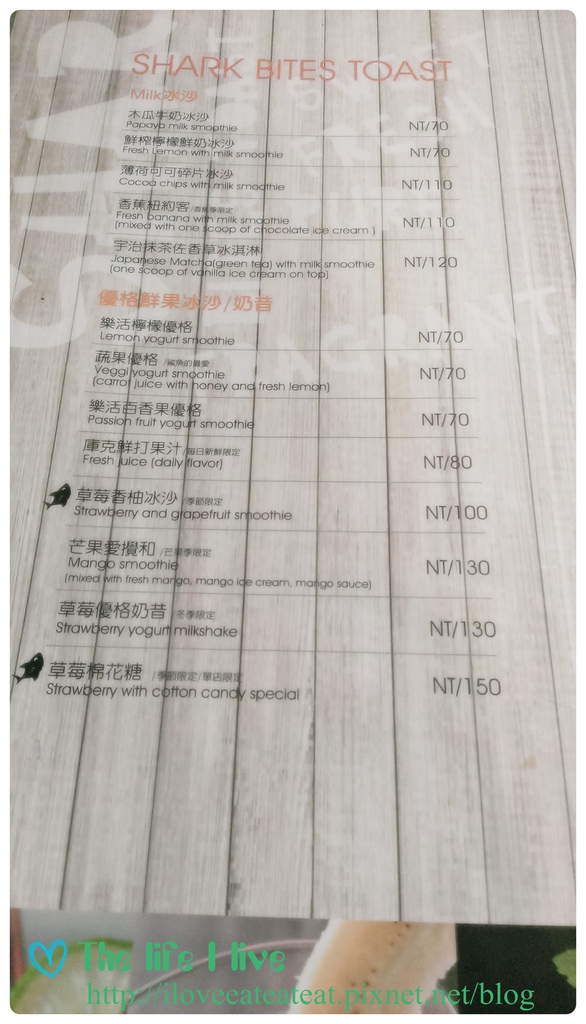 SHARK BITES TOAST
Milk冰沙
木瓜牛奶冰沙
Papaya milk smoothie NT/70
鮮榨檸檬鮮奶冰沙
Fresh Lemon with milk smoothie NT/70
薄荷可可碎片冰沙
Cocoa chips with milk smoothie NT/110
香蕉紐約客/香蕉季限定
Fresh banana with milk smoothie NT/110
(mixed with one scoop of chocolate ice cream )
宇治抹茶佐香草冰淇淋
Japanese Matcha(green tea) with milk smoothie NT/120
(one scoop of vanilla ice cream on top)
優格鮮果冰沙/奶昔
樂活檸檬優格
Lemon yogurt smoothie NT/70
蔬果優格 /鯊魚的最愛
Veggi yogurt smoothie NT/70
(carrot juice with honey and fresh lemon)
樂活百香果優格
Passion fruit yogurt smoothie NT/70
庫克鮮打果汁/每日新鮮限定
Fresh juice (daily flavor) NT/80
草莓香柚冰沙 /季節限定
Strawberry and grapefruit smoothie NT/100
芒果愛攪和 /芒果季限定
Mango smoothie NT/130
(mixed with fresh mango, mango ice cream, mango sauce)
草莓優格奶昔 /冬季限定
Strawberry yogurt milkshake NT/130
草莓棉花糖 /季節限定/單店限定
Strawberry with cotton candy special NT/150
The life I live
http://iloveeateateat.pixnet.net/blog